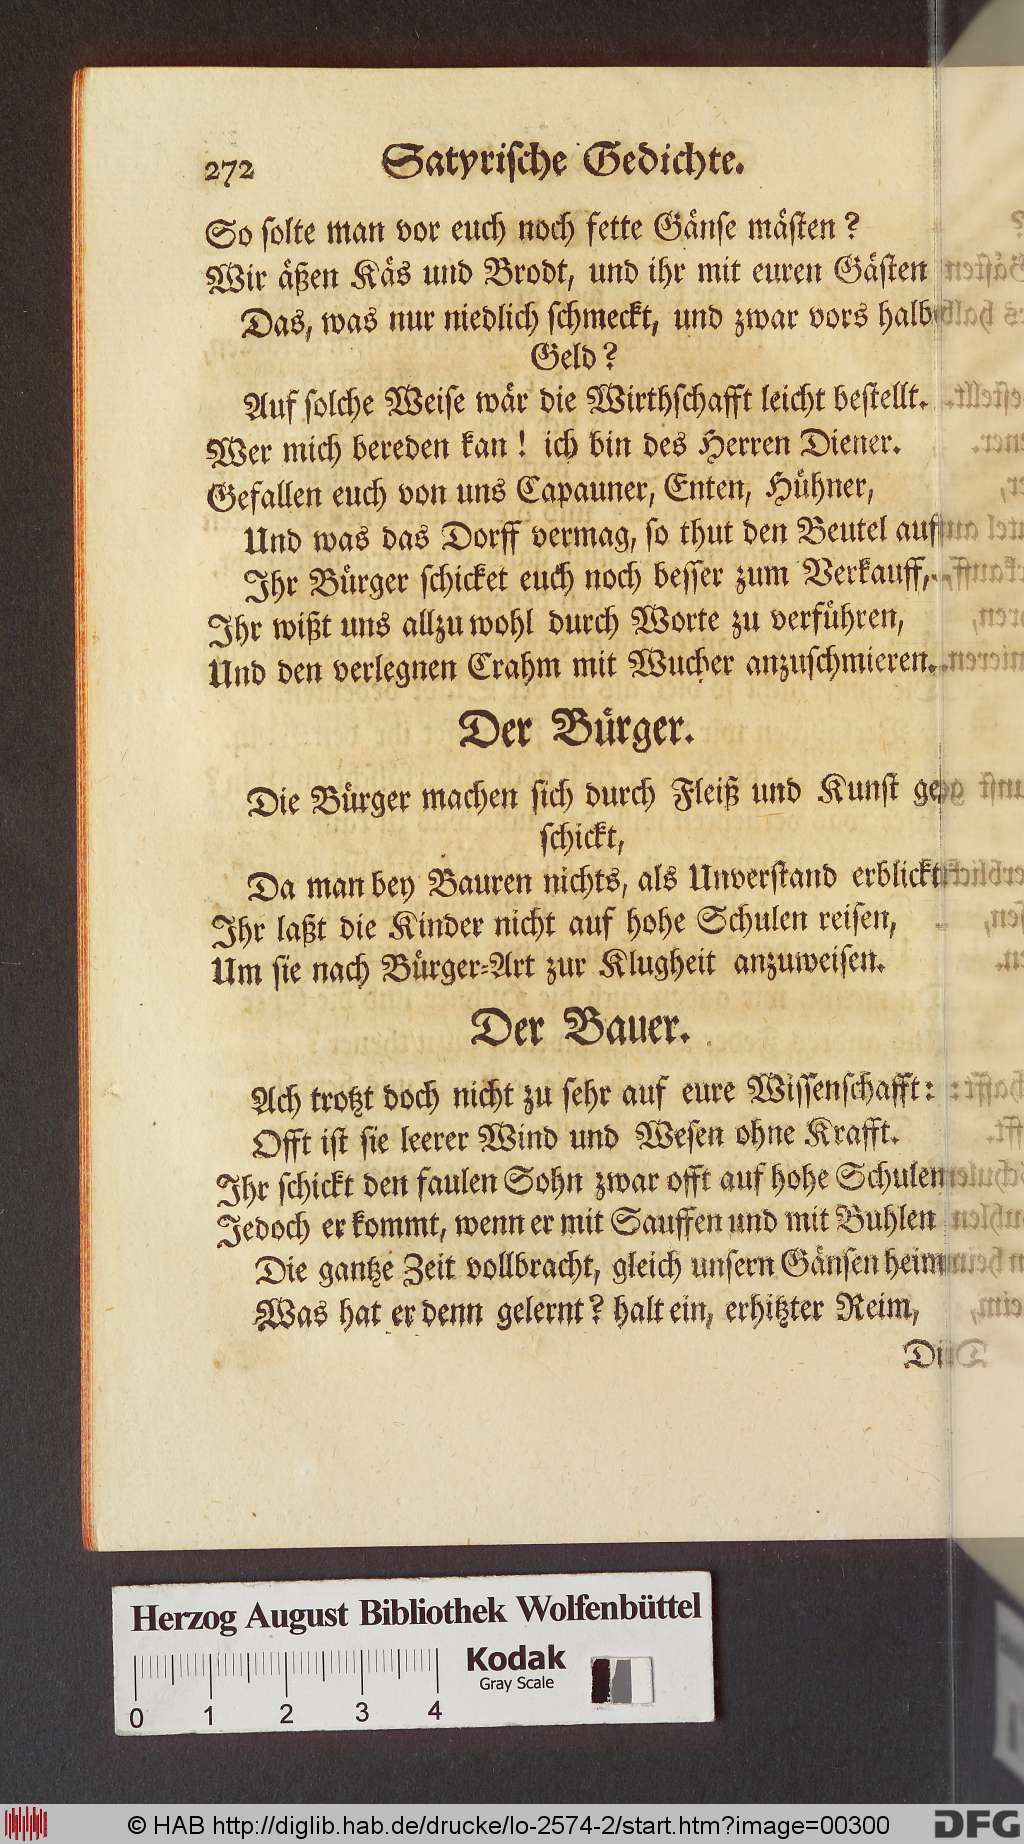 272 Satyrische Gedichte.
So solte man vor euch noch fette Gänse mästen?
Wir äßen Käs und Brodt, und ihr mit euren Gästen
Das, was nur niedlich schmeckt, und zwar vors halb
Geld?
Auf solche Weise wär die Wirthschafft leicht bestellt.
Wer mich bereden kan! ich bin des Herren Diener.
Gefallen euch von uns Capauner, Enten, Hühner,
Und was das Dorff vermag, so thut den Beutel auf
Ihr Bürger schicket euch noch besser zum Verkauff,
Ihr wißt uns allzuwohl durch Worte zu verführen,
Und den verlegnen Crahm mit Wucher anzuschmieren.
Der Bürger.
Die Bürger machen sich durch Fleiß und Kunst ge-
schickt,
Da man bey Bauren nichts, als Unverstand erblickt
Ihr laßt die Kinder nicht auf hohe Schulen reisen,
Um sie nach Bürger-Art zur Klugheit anzuweisen.
Der Bauer.
Ach trotzt doch nicht zu sehr auf eure Wissenschafft:
Offt ist sie leerer Wind und Wesen ohne Krafft.
Ihr schickt den faulen Sohn zwar offt auf hohe Schulen
Jedoch er kommt, wenn er mit Sauffen und mit Buhlen
Die gantze Zeit vollbracht, gleich unsern Gänsen heim
Was hat er denn gelernt? halt ein, erhitzter Reim,
Herzog August Bibliothek Wolfenbüttel
Kodak
Gray Scale
0 1 2 3 4
© HAB http://diglib.hab.de/drucke/lo-2574-2/start.htm?image=00300
DFG